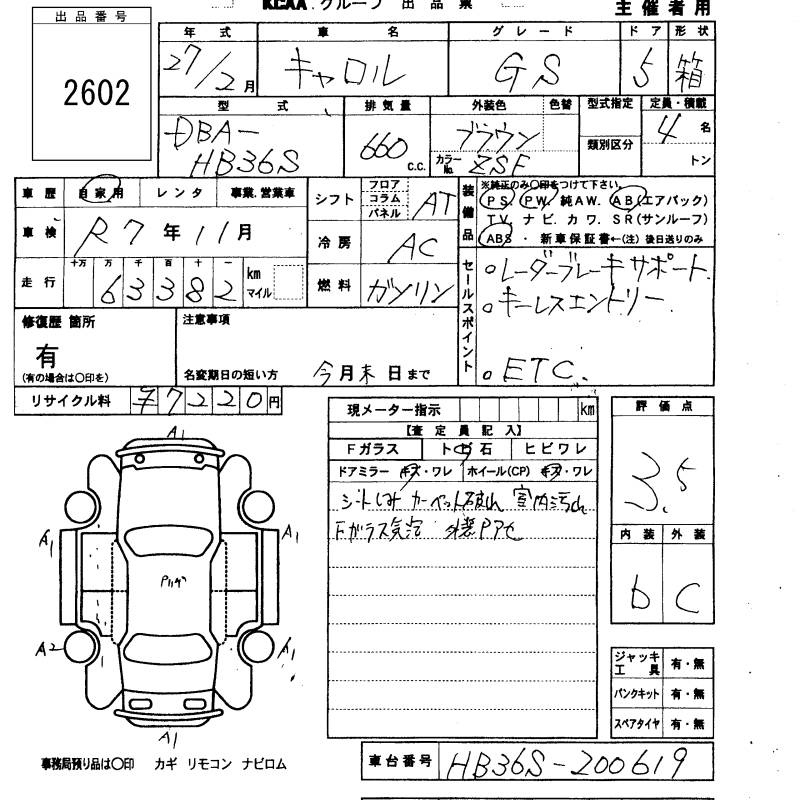 KCAA.グループ 出品票
主催者用
出品番号
2602
年式 車名 グレード ドア 形状
27/2月 キャロル GS 5 箱
型式 排気量 外装色 色替 型式指定 定員・積載
DBA-HB36S 660 c.c. ブラウン カラーNo. ZSF 類別区分 4名 トン
車歴 自家用 レンタ 事業.営業車
車検 R7年11月
走行 十万 万 千 百 十 一 63382 km マイル
シフト フロア コラム パネル AT
冷房 AC
燃料 ガソリン
装備品 ※純正のみ〇印をつけて下さい。
PS. PW. 純AW. AB(エアバック)
TV. ナビ. カワ. SR(サンルーフ)
ABS ・ 新車保証書←(注) 後日送りのみ
セールスポイント
。レーダーブレーキサポート.
。キーレスエントリー.
。ETC.
修復歴 箇所
有
(有の場合は〇印を)
注意事項
名変期日の短い方 今月末日まで
リサイクル料 ¥7220円
現メーター指示 km
【査定員記入】
Fガラス トビ石 ヒビワレ
ドアミラー キズ・ワレ ホイール(CP) キズ・ワレ
シートしみ カーペット破れ 室内汚れ
Fガラス気泡
評価点
3.5
内装 外装
b C
ジャッキ工具 有・無
パンクキット 有・無
スペアタイヤ 有・無
A1
A1 A1
A2 A1
A1
事務局預り品は〇印 カギ リモコン ナビロム
車台番号 HB36S-200619